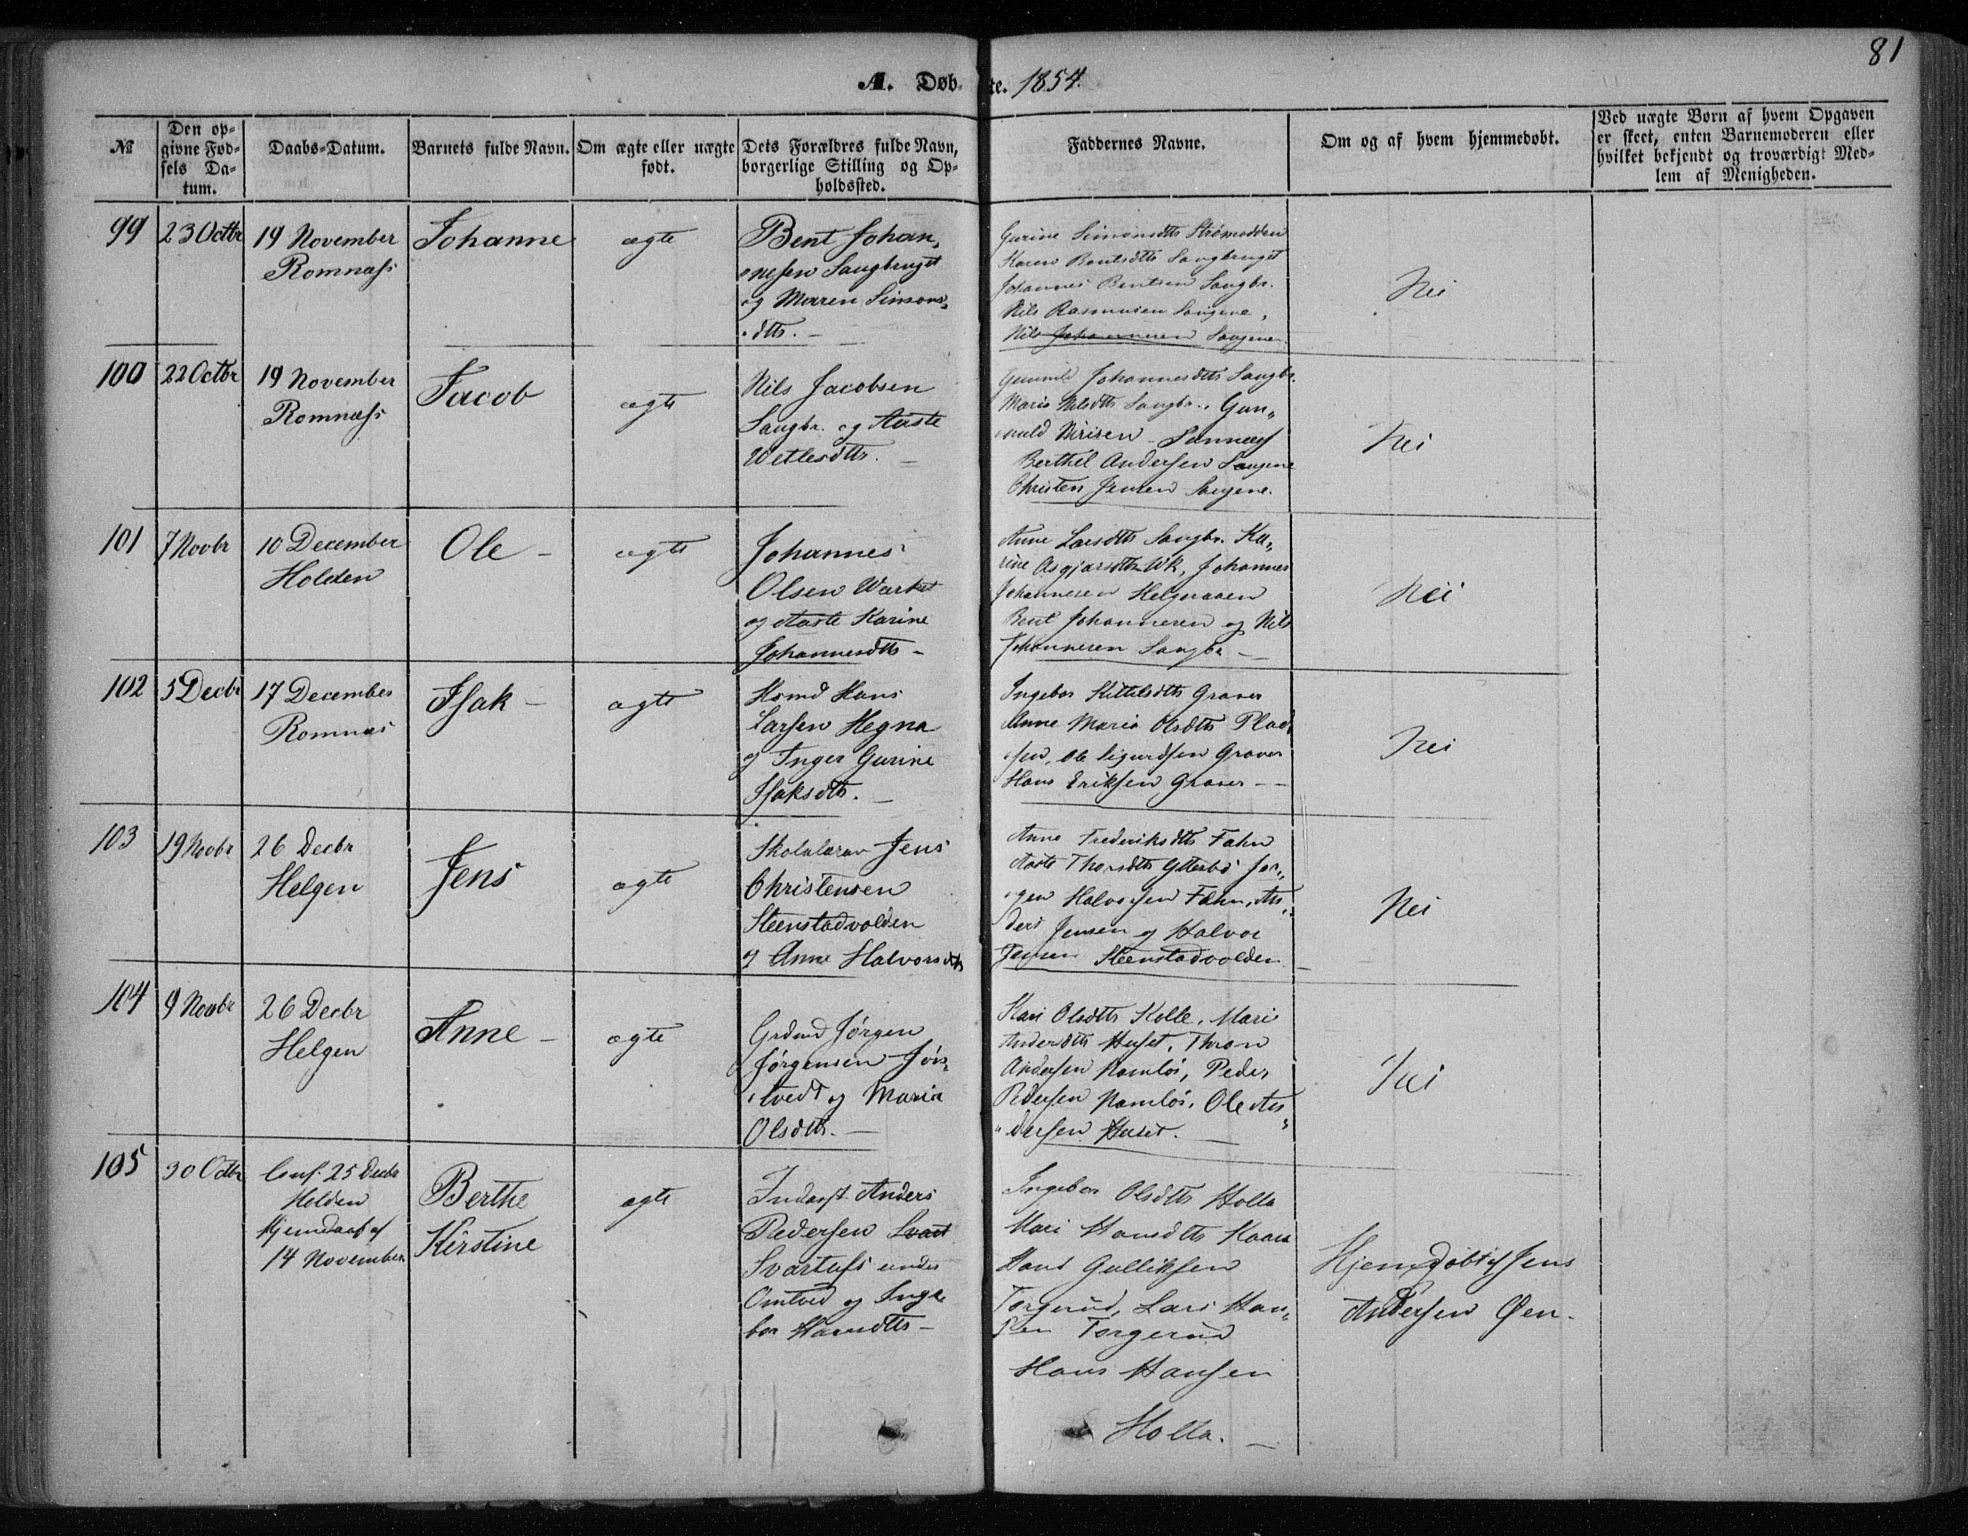 81
A. Døbte. 1854.
№
Den opgivne Fødsels Datum.
Daabs-Datum.
Barnets fulde Navn.
Om ægte eller uægte født.
Dets Forældres fulde Navn, borgerlige Stilling og Opholdssted.
Faddernes Navne.
Om og af hvem hjemmedøbt.
Ved uægte Børn af hvem Opgaven er skeet, enten Barnemoderen eller hvilket bekjendt og troværdigt Medlem af Menigheden.
99
23 Octbr
19 November
Romnæss
Johanne
ægte
Bent Johan,
nesen Saugbruget
og Maren Simons,
dttr. –
Gurine Simonsdttr Strømodden
Karen Bentsdttr Saugbruget
Johannes Bentsen Saugbr.
Nils Rasmusen Saugene,
Nils Johannesen Saugene
Nei
100
22 Octbr
19 November
Romnæss
Jacob
ægte
Nils Jacobsen
Saugbr. og Aaste
Wetlesdttr. –
Gunnild Johannesdttr Saugbr.
Maria Nilsdttr Saugbr., Gun„
Berthel Andersen Saugene
Christen Jensen Saugene.
Nei
101
7 Novbr
10 December
Holden
Ole –
ægte
Johannes
Olsen Værket
og Aaste Karine
Johannesdttr –
Anne Larsdttr Saugbr. Ka„
rine Asgjarsdttr Vk, Johannes
Johannesen Helgeraaen
Bent Johannesen og Nils
Johannesen Saugbr –
Nei
102
5 Decbr
17 December
Romnæs
Isak –
ægte
Hsmd Hans
Larsen Hegna
og Inger Gurine
Isaksdttr. –
Ingebor Kittilsdttr Graver
Anne Maria Olsdttr Plad
sen, Ole Sigurdsen Graver
Hans Eriksen Graver – –
Nei
103
19 Novbr
26 Decbr
Helgen
Jens
ægte
Skolelærer Jens
Christensen
Steenstadvolden
og Anne Halvorsdttr
Anne Frederiksdttr Fahn
Aaste Thorsdttr Ytterbø Jør„
gen Halvorsen Fæhn, An„
ders Jensen og Halvor
Jensen Steenstadvolden
Nei
104
9 Novbr
26 Decbr
Helgen
Anne –
ægte
Grdmd Jørgen
Jørgensen Jøn„
tvedt og Maria
Olsdttr. –
Kari Olsdttr Kolle, Mari
Andersdttr Huset, Thron
Andersen Namløs, Peder
Pedersen Namløs, Ole An„
dersen Huset. –
Nei
105
30 Octbr
Conf. 25 Decbr
Holden
Hjemdøbt af
14 November
Berthe
Kirstine
ægte
Inderst Anders
Pedersen Svart
Svartufs under
Omtved og Inge
bor Hansdttr –
Ingebor Olsdttr Holta
Mari Hansdttr Kaasa
Hans Gulliksen
Torgerud, Lars Han„
sen Torgerud
Hans Hansen
Holta. –
Hjemdøbt af Jens
Andersen Øen.